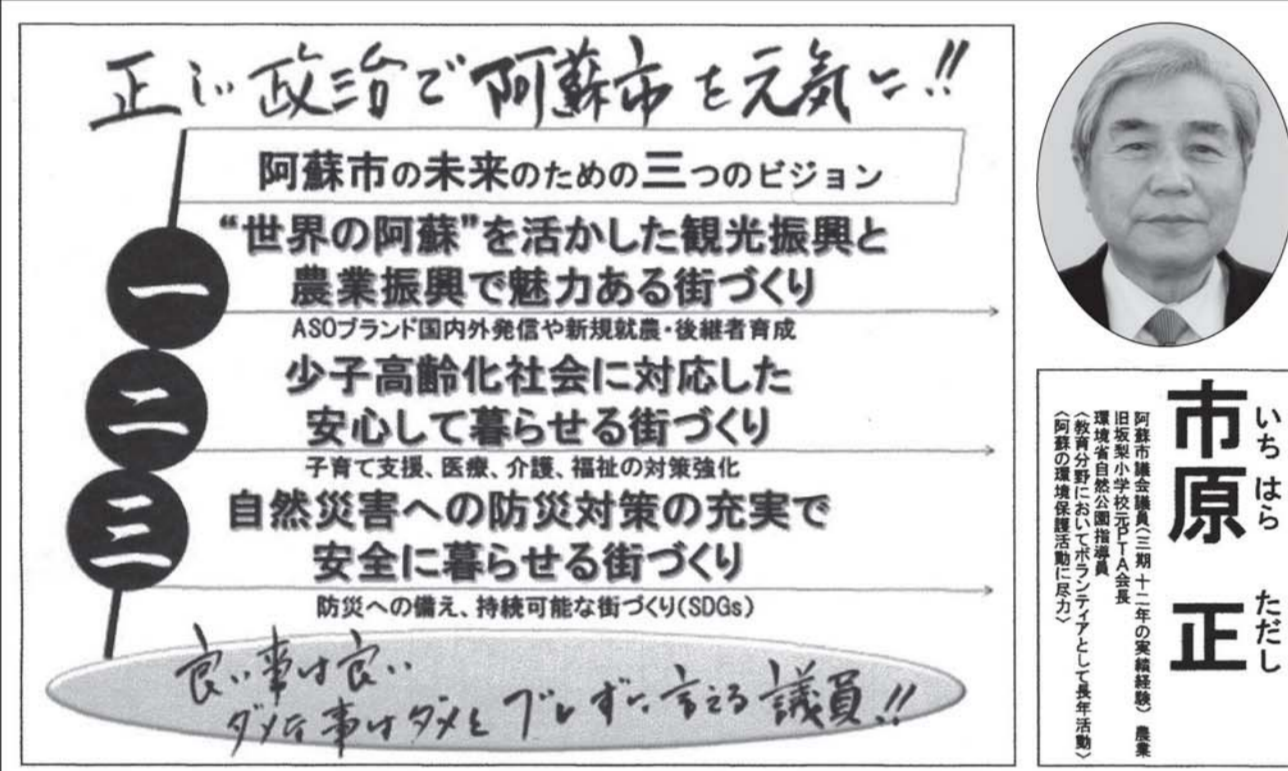 正しい政治で阿蘇市を元気に!!
阿蘇市の未来のための三つのビジョン
一
“世界の阿蘇”を活かした観光振興と
農業振興で魅力ある街づくり
ASOブランド国内外発信や新規就農・後継者育成
二
少子高齢化社会に対応した
安心して暮らせる街づくり
子育て支援、医療、介護、福祉の対策強化
三
自然災害への防災対策の充実で
安全に暮らせる街づくり
防災への備え、持続可能な街づくり(SDGs)
良い事は良い
ダメな事はダメとブレずに言える議員!!
いちはら ただし
市原 正
阿蘇市議会議員(三期 十二年の実績経験) 農業
旧坂梨小学校元PTA会長
環境省自然公園指導員
〈教育分野においてボランティアとして長年活動〉
〈阿蘇の環境保護活動に尽力〉